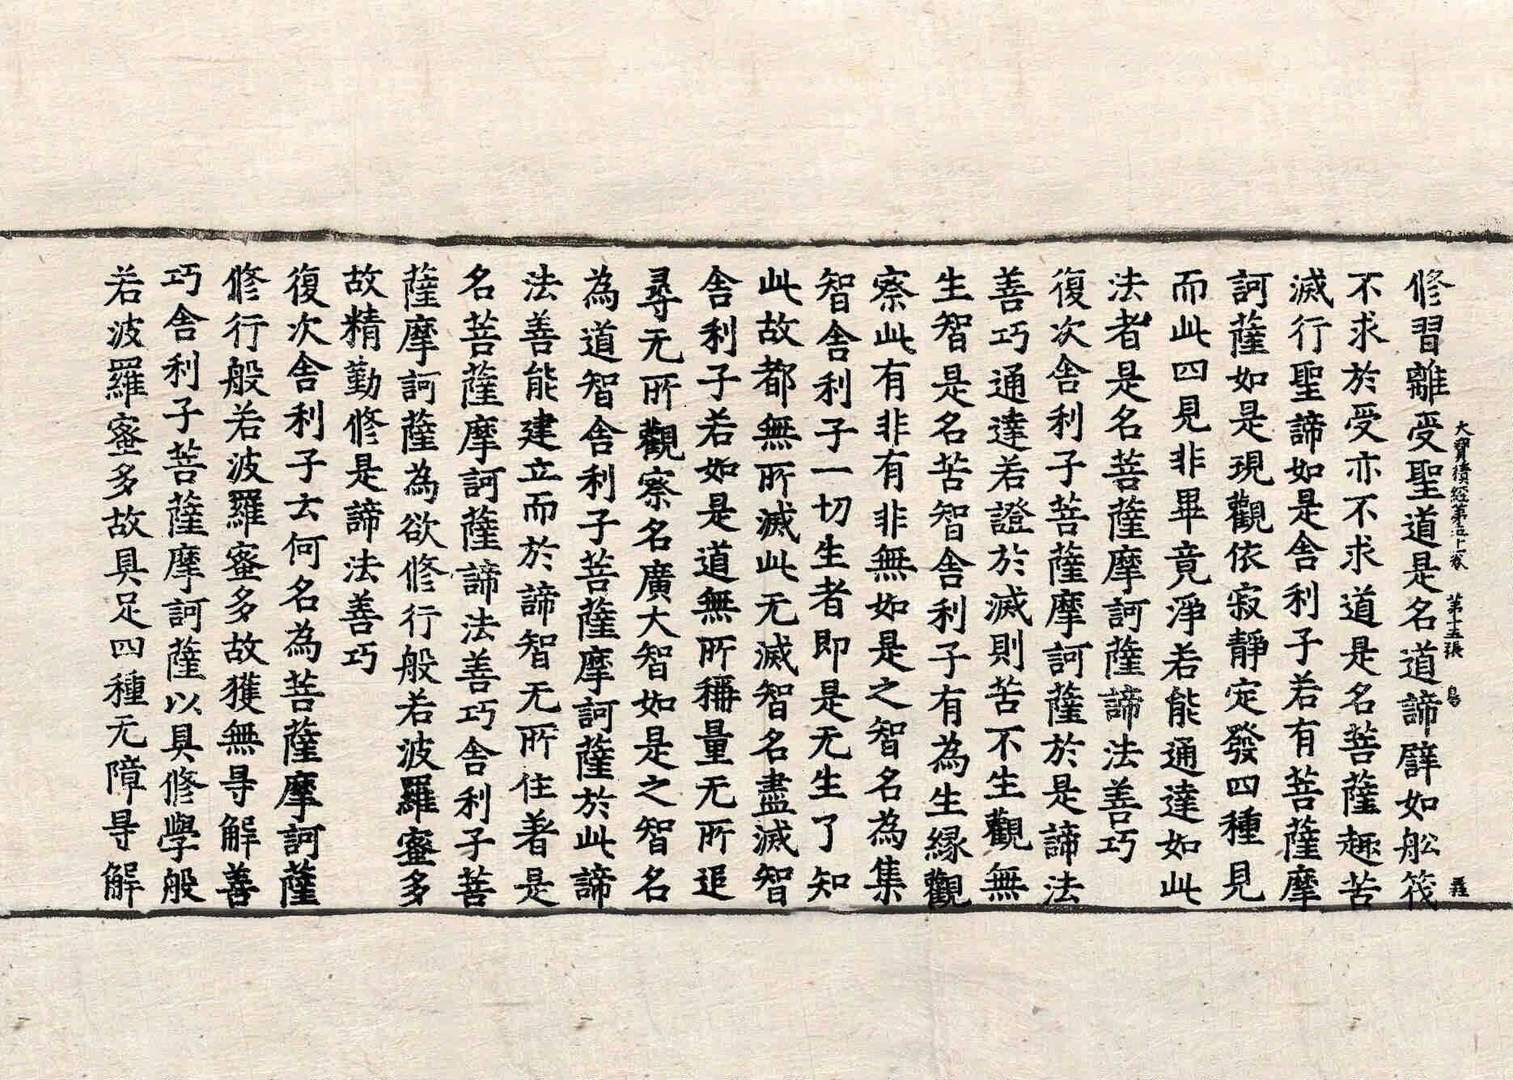 大寶積經第五十卷 第十五張 鳥
修習離受聖道是名道諦辟如舩筏
不求於受亦不求道是名菩薩趣苦
滅行聖諦如是舍利子若有菩薩摩
訶薩如是現觀依寂靜定發四種見
而此四見非畢竟淨若能通達如此
法者是名菩薩摩訶薩諦法善巧
復次舍利子菩薩摩訶薩於是諦法
善巧通達若證於滅則苦不生觀無
生智是名苦智舍利子有為生緣觀
察此有非有非無如是之智名為集
智舍利子一切生者即是无生了知
此故都無所滅此无滅智名盡滅智
舍利子若如是道無所稱量无所追
尋无所觀察名廣大智如是之智名
為道智舍利子菩薩摩訶薩於此諦
法善能建立而於諦智无所住著是
名菩薩摩訶薩諦法善巧舍利子菩
薩摩訶薩為欲修行般若波羅蜜多
故精勤修是諦法善巧
復次舍利子云何名為菩薩摩訶薩
修行般若波羅蜜多故獲無㝵解善
巧舍利子菩薩摩訶薩以具修學般
若波羅蜜多故具足四種无障㝵解